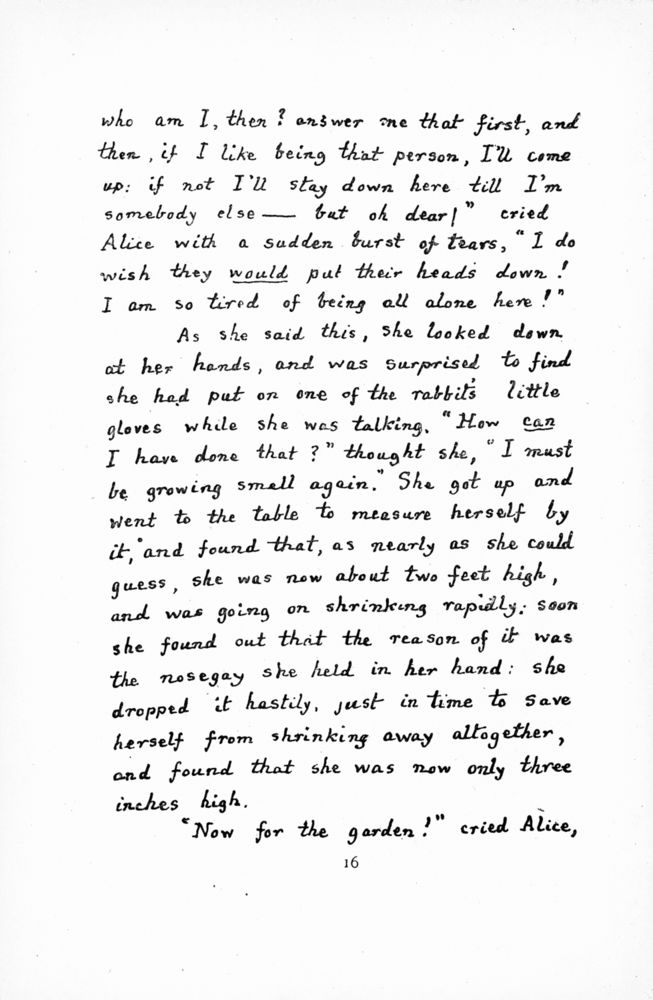 who am I, then? answer me that first, and
then, if I like being that person, I'll come
up: if not I'll stay down here till I'm
somebody else — but oh dear!" cried
Alice with a sudden burst of tears, "I do
wish they would put their heads down!
I am so tired of being all alone here!"
As she said this, she looked down
at her hands, and was surprised to find
she had put on one of the rabbit's little
gloves while she was talking. "How can
I have done that?" thought she, "I must
be growing small again." She got up and
went to the table to measure herself by
it, and found that, as nearly as she could
guess, she was now about two feet high,
and was going on shrinking rapidly: soon
she found out that the reason of it was
the nosegay she held in her hand: she
dropped it hastily, just in time to save
herself from shrinking away altogether,
and found that she was now only three
inches high.
"Now for the garden!" cried Alice,
16